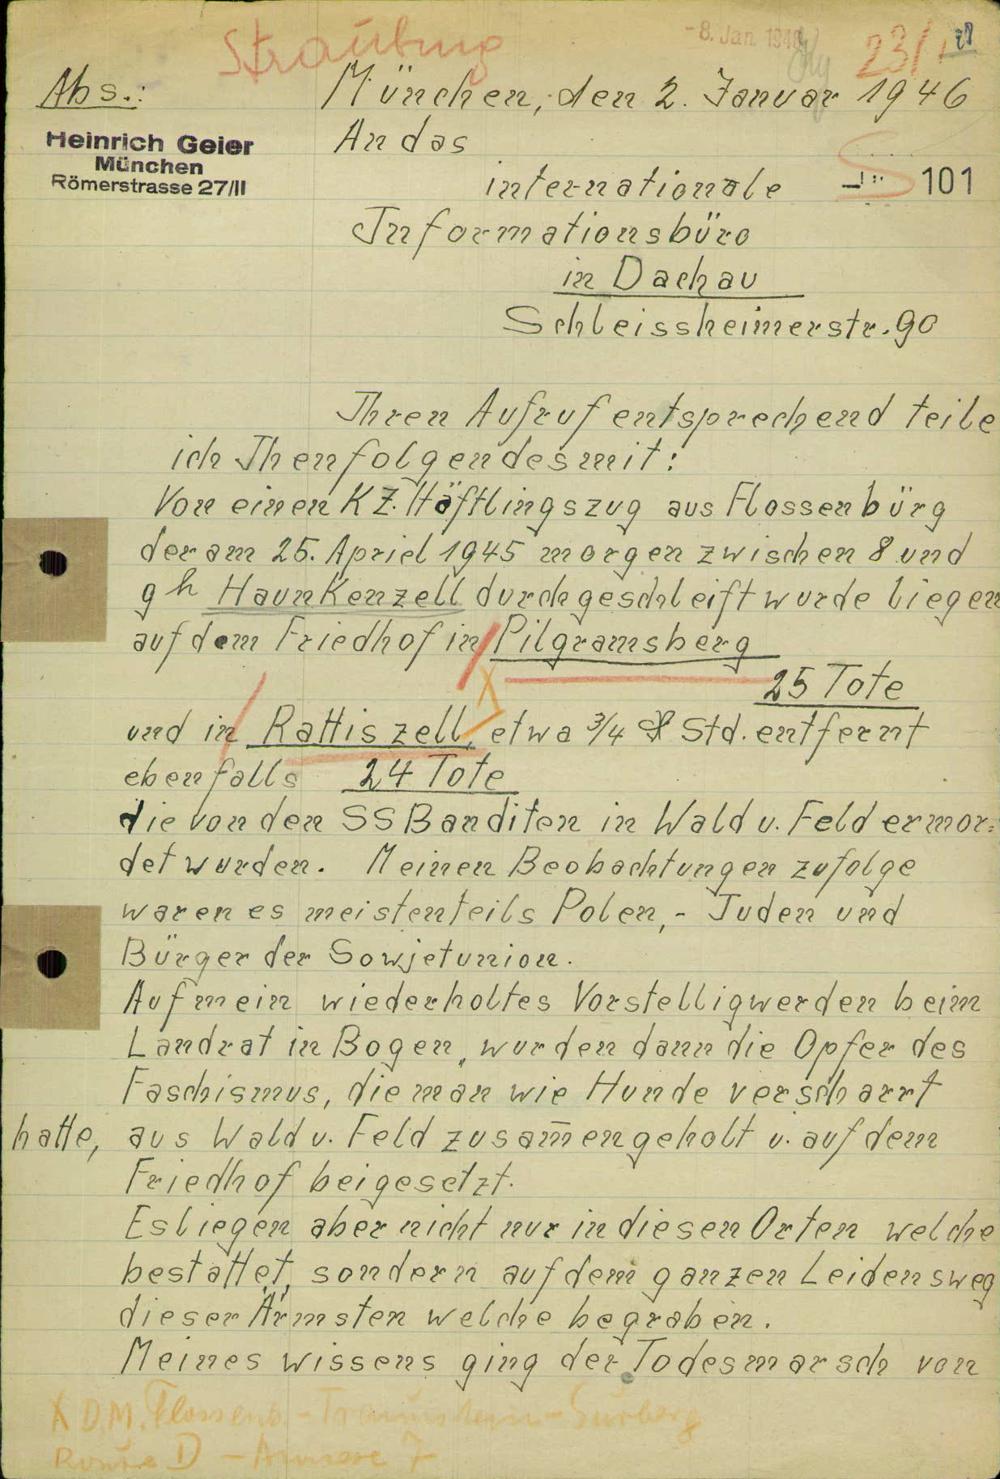 Straubing
-8. Jan. 1946
23/I
Abs.:
München, den 2. Januar 1946
Heinrich Geier
München
Römerstrasse 27/II
An das
internationale
101
Informationsbüro
in Dachau
Schleissheimerstr. 90
Ihren Aufruf entsprechend teile
ich Ihen folgendes mit:
Von einen KZ. Häftlingszug aus Flossenbürg
der am 25. Apriel 1945 morgen zwischen 8 und
9 h Haunkenzell durchgeschleift wurde liegen
auf dem Friedhof in Pilgramsberg
25 Tote
und in Rattiszell, etwa 3/4 Std. entfernt
ebenfalls 24 Tote
die von den SS Banditen in Wald u. Feld ermor=
det wurden. Meinen Beobachtungen zufolge
waren es meistenteils Polen,- Juden und
Bürger der Sowjetunion.
Auf mein wiederholtes Vorstelligwerden beim
Landrat in Bogen, wurden dann die Opfer des
Faschismus, die man wie Hunde verscharrt
hatte, aus Wald u. Feld zusam̄engeholt u. auf dem
Friedhof beigesetzt.
Es liegen aber nicht nur in diesen Orten welche
bestattet, sondern auf dem ganzen Leidensweg
dieser Ärmsten welche begraben.
Meines wissens ging der Todesmarsch von
X D.M. Flossenb. - Traunstein - Surberg
Route D - Annexe 7